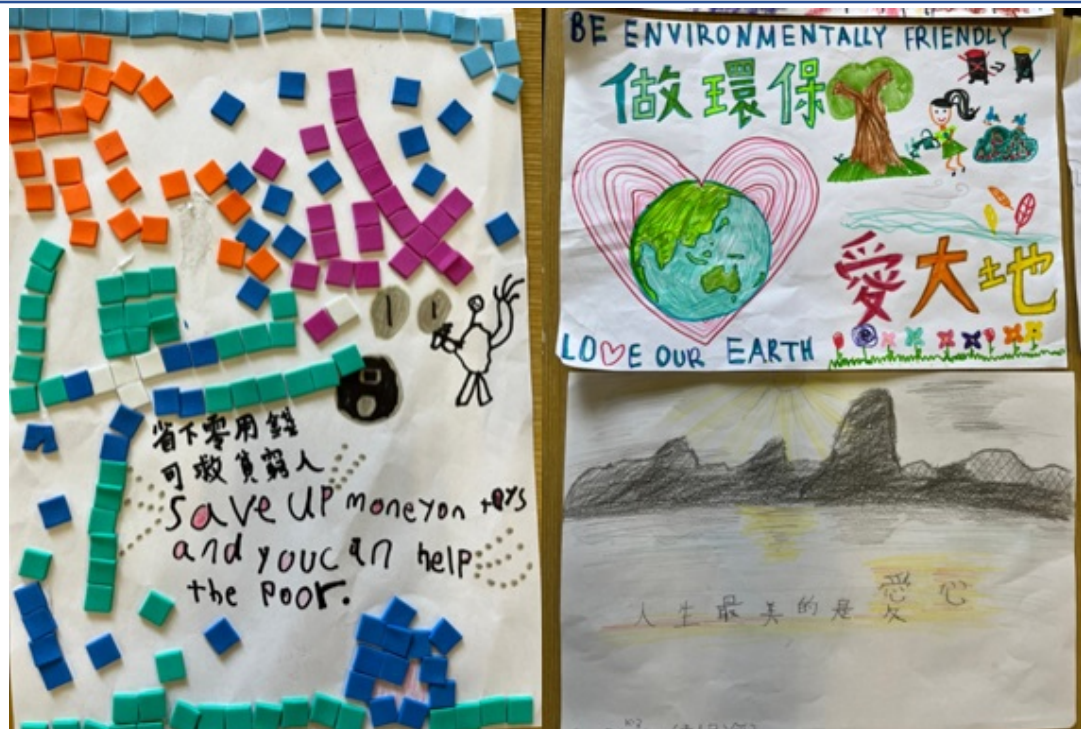 省下零用錢
可救貧窮人
Save UP money on toys
and you can help
the Poor.
BE ENVIRONMENTALLY FRIENDLY
做環保
愛大地
LOVE OUR EARTH
人生最美的是愛心